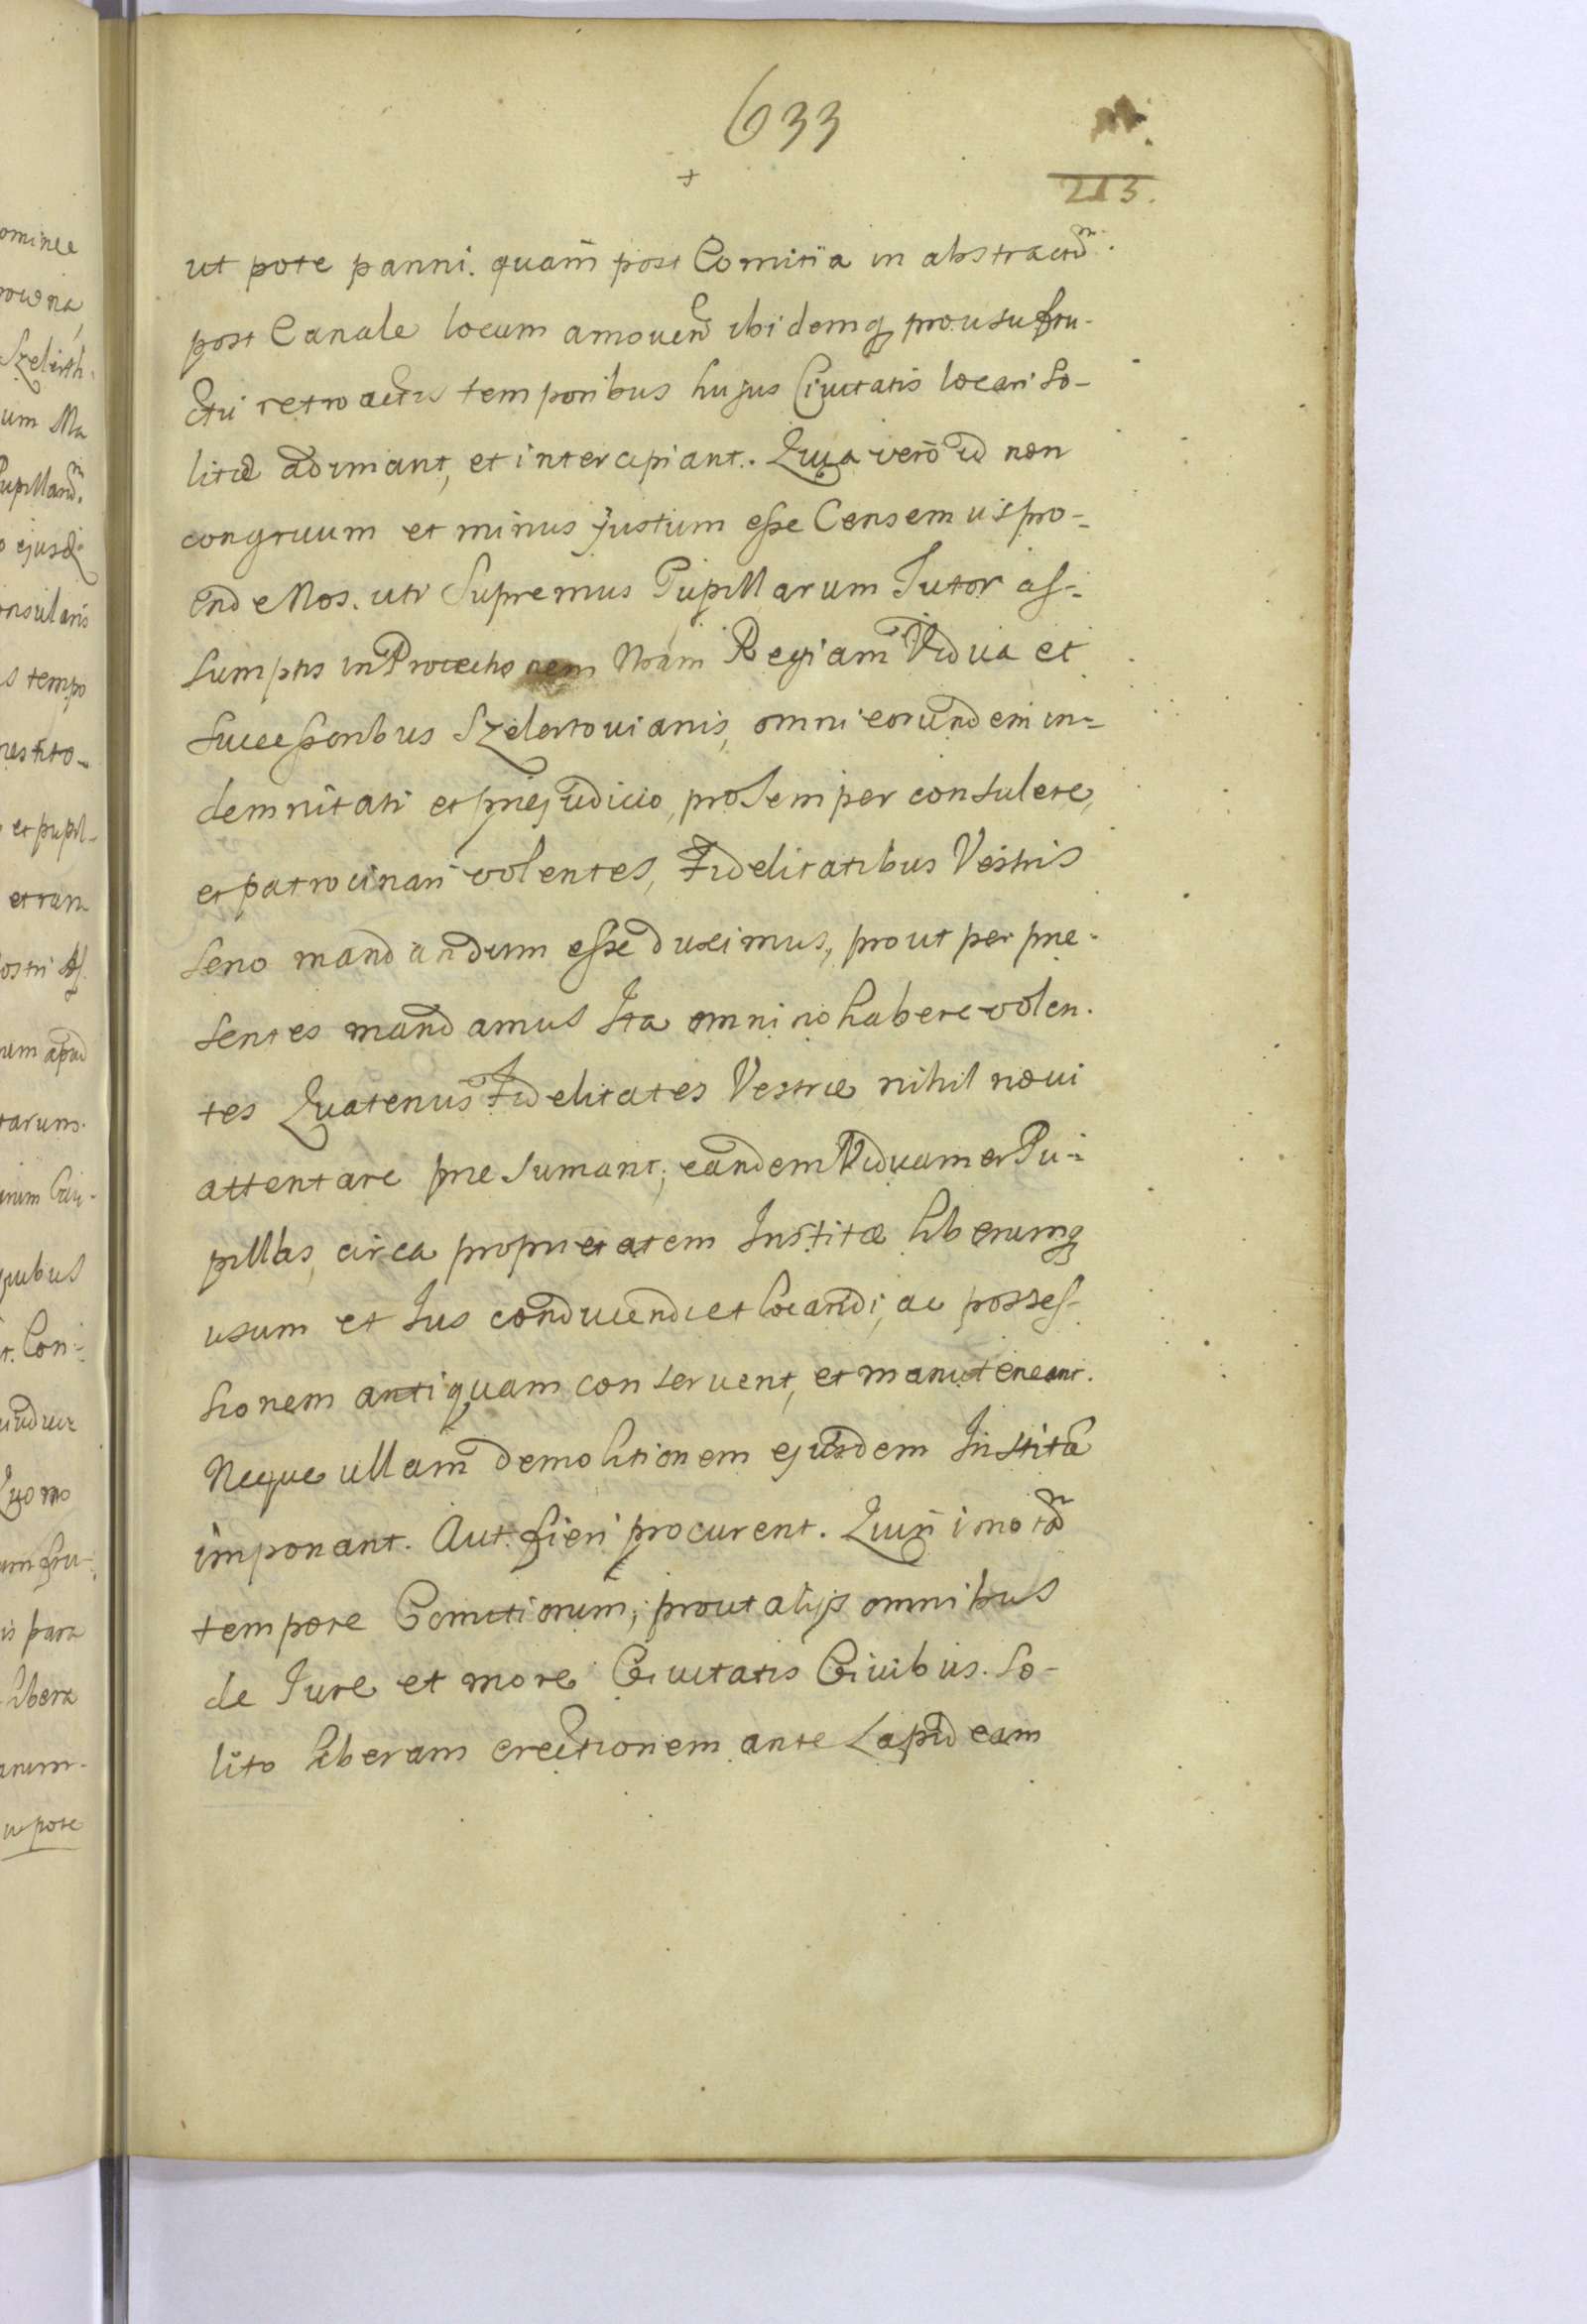 633
213.
ut pote panni. quam post Comitia in abstractu
post Canale locum amouend ibidemq pro usufru-
ctu retroactis temporibus hujus Ciuitatis locari so-
litae adimant, et intercipiant. Quia vero id non
congruum et minus justum esse Censemus pro-
inde Nos. uti Supremus Pupillarum Tutor as-
sumptis in Protectionem Nram Regiam Vidua et
Successoribus Szelertouianis, omni eorundem in-
demnitati et prejudicio, pro semper consulere,
et patrocinari volentes, Fidelitatibus Vestris
serio mandandum esse duximus, prout per pre-
sentes mandamus Ita omnino habere volen-
tes Quatenus Fidelitates Vestrae nihil noui
attentare presumant; eandem Viduam et Pu-
pillas, circa proprietatem Institae liberumq
usum et Jus conducendi et locandi, ac posses-
sionem antiquam conseruent, et manuteneant.
Neque ullam demolitionem ejusdem Institae
imponant. Aut fieri procurent. Quin imo tam
tempore Comitiorum, prout alijs omnibus
de Jure et more Ciuitatis Ciuibus. so-
lito liberam erectionem ante Lapideam
ominee
Szelerth-
um Ma
ejusd
onsularis
s tempo
et pupil-
et tam
ostri As
um apud
tarum.
quibus
t. Con-
Quomo
um fru-
is para
libera
ut pote